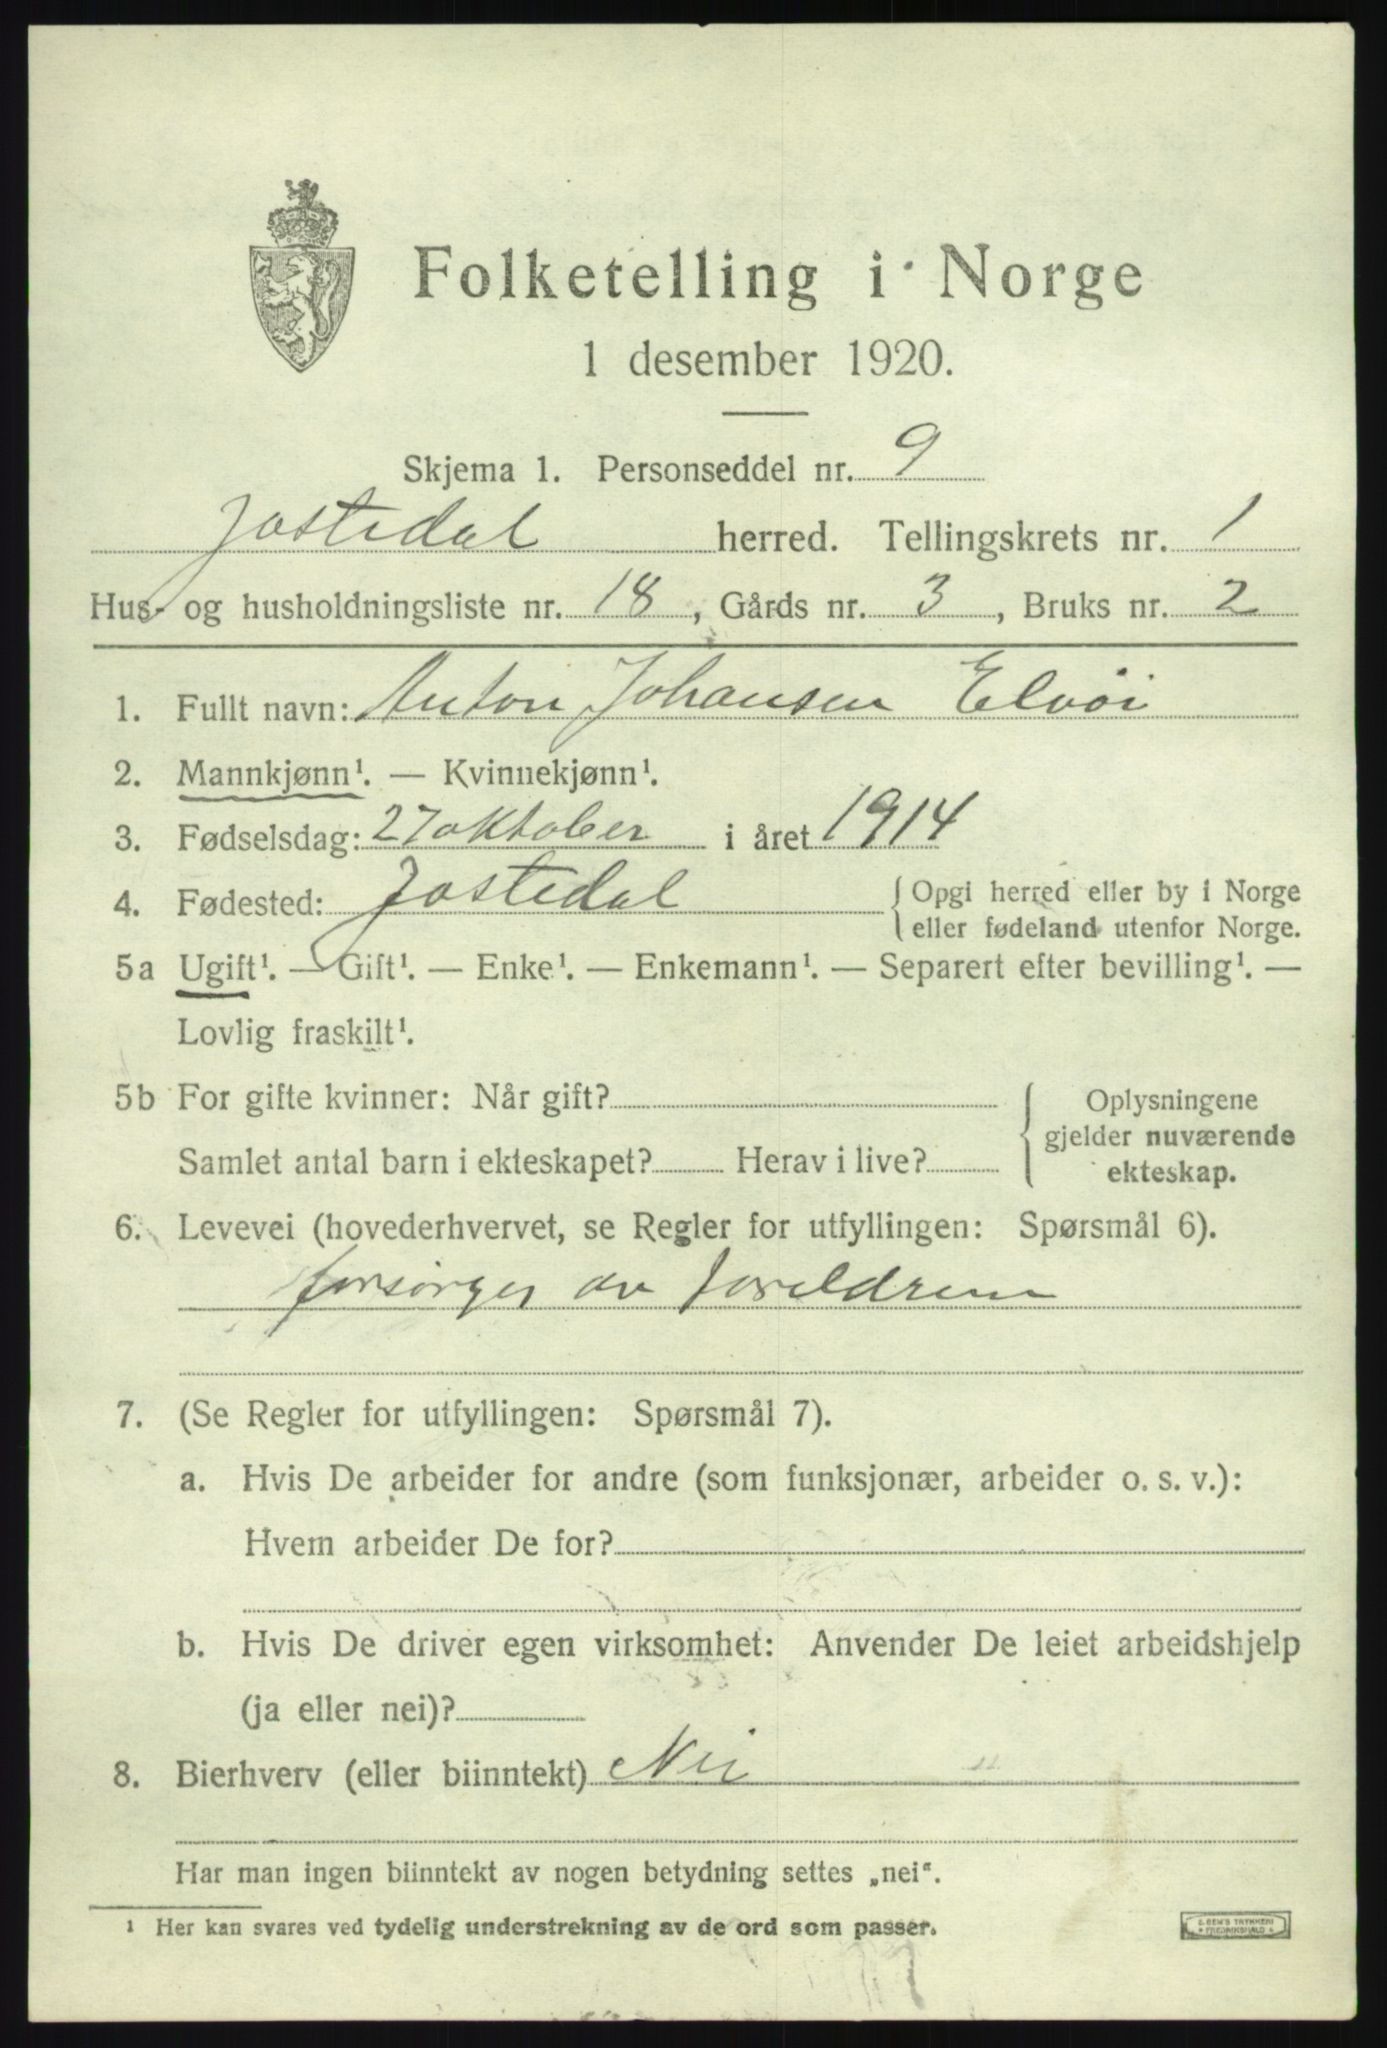 Folketelling i Norge
1 desember 1920.
Skjema 1. Personseddel nr. 9
Jostedal herred. Tellingskrets nr. 1
Hus- og husholdningsliste nr. 18, Gårds nr. 3, Bruks nr. 2
1. Fullt navn: Anton Johansen Elvöi
2. Mannkjønn¹. — Kvinnekjønn¹.
3. Fødselsdag: 27 oktober i året 1914
4. Fødested: Jostedal { Opgi herred eller by i Norge
eller fødeland utenfor Norge.
5a Ugift¹. — Gift¹. — Enke¹. — Enkemann¹. — Separert efter bevilling¹. —
Lovlig fraskilt¹.
5b For gifte kvinner: Når gift? { Oplysningene
gjelder nuværende
Samlet antal barn i ekteskapet? Herav i live? ekteskap.
6. Levevei (hovederhvervet, se Regler for utfyllingen: Spørsmål 6).
forsörges av foreldrene
7. (Se Regler for utfyllingen: Spørsmål 7).
a. Hvis De arbeider for andre (som funksjonær, arbeider o. s. v.):
Hvem arbeider De for?
b. Hvis De driver egen virksomhet: Anvender De leiet arbeidshjelp
(ja eller nei)?
8. Bierhverv (eller biinntekt) Nei
Har man ingen biinntekt av nogen betydning settes „nei“.
¹ Her kan svares ved tydelig understrekning av de ord som passer.
S. BEM'S TRYKKERI
FREDRIKSHALD